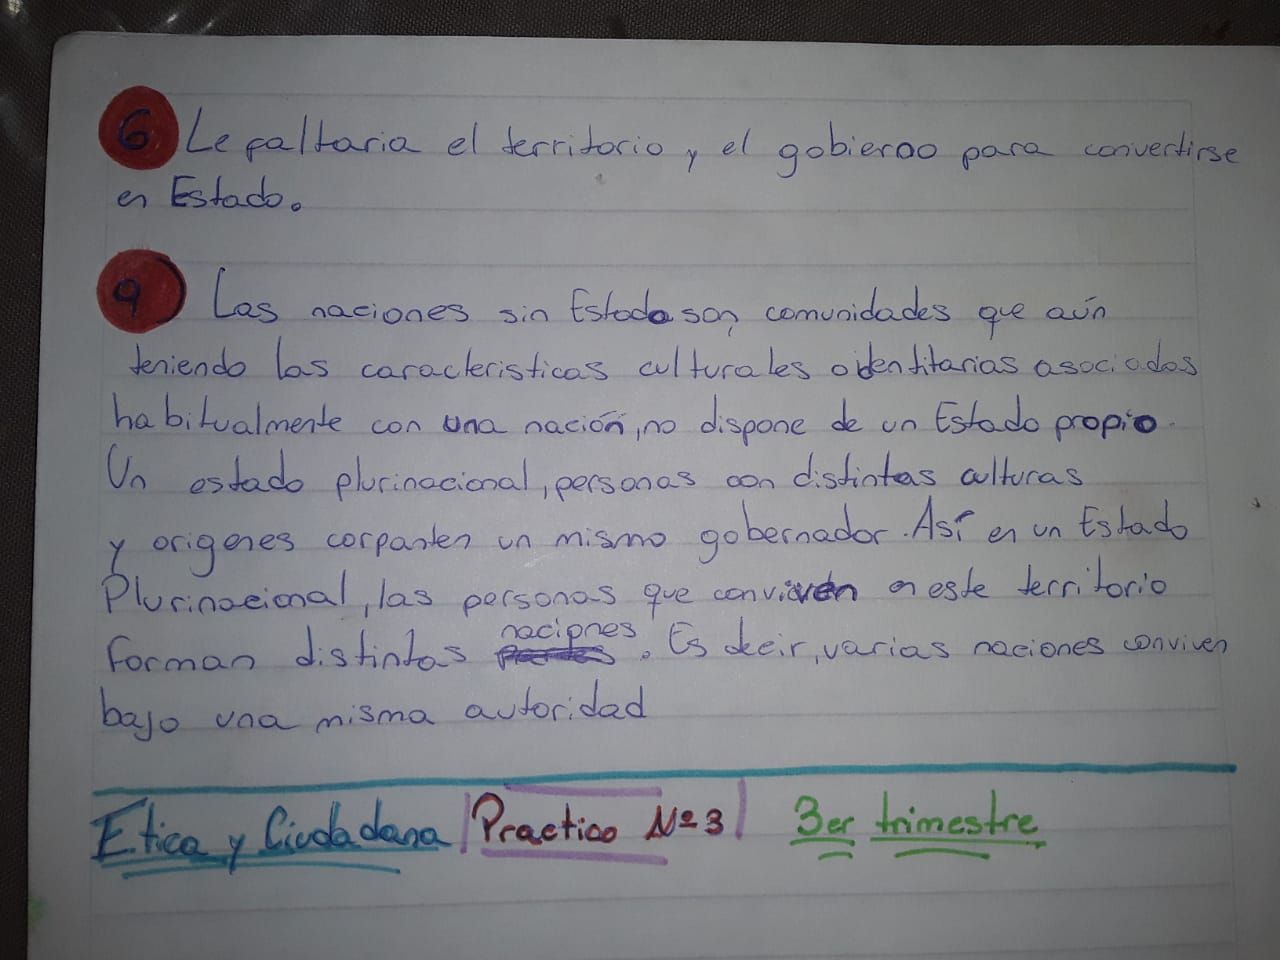 6 Le faltaria el territorio y el gobierno para convertirse
en Estado.
9 Las naciones sin Estado son comunidades que aún
teniendo las caracteristicas culturales o identitarias asociadas
habitualmente con una nación, no dispone de un Estado propio.
Un estado plurinacional, personas con distintas culturas
y origenes corparten un mismo gobernador. Así en un Estado
Plurinacional, las personas que conviven en este territorio
forman distintas naciones. Es decir, varias naciones conviven
bajo una misma autoridad
Etica y Ciudadana | Practico Nº 3 | 3er trimestre